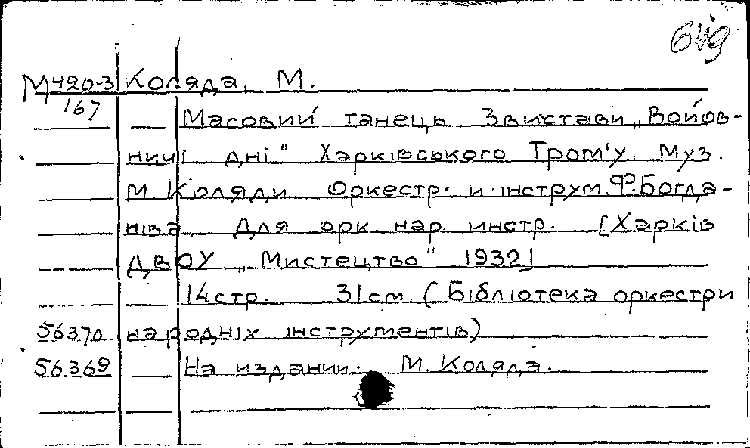 649
М420-3 Коляда, М.
167
Масовий танець з вистави „Войов-
ничі дні" Харківського Тром'у. Муз.
М. Коляди. Оркестр. и інструм. Ф. Богда-
нова. Для орк. нар. инстр. [Харків
ДВОУ „Мистецтво" 1932]
14 стр. 31 см (Бібліотека оркестри
56370 народніх інструментів)
56369 На издании: М. Коляда.